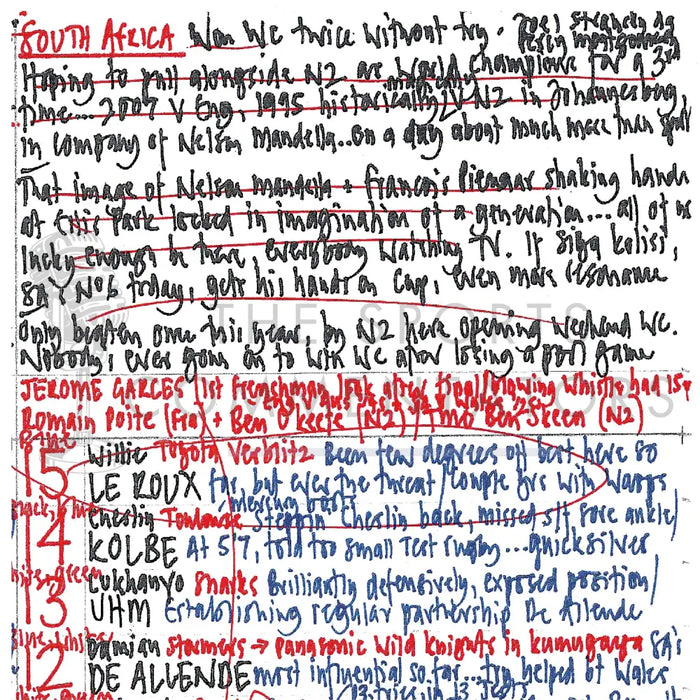 SOUTH AFRICA Won WC twice without try. Joel Stransky 1995
Percy Montgomery
Hoping to pull alongside NZ as World Champions for a 3rd
time... 2007 v Eng, 1995 historically v NZ in Johannesburg
in company of Nelson Mandella..on a day about much more than sport
That image of Nelson Mandella + Francois Pienaar shaking hands
at Ellis Park locked in imagination of a generation... all of us
lucky enough to be there, everybody watching TV. If Siya Kolisi,
SA's No6 today, gets his hands on Cup, even more resonance
THE SPORTS
Only beaten once this year, by NZ here opening weekend WC.
Nobody's ever gone on to win WC after losing a pool game
COMMENTATORS
JEROME GARCES 1st Frenchman look after final/blowing whistle had 1st
Romain Poite (Fra) + Ben O'Keefe (NZ) / TMO Ben Skeen (NZ)
15 Willie Toyota Verblitz Been few degrees off best here so
LE ROUX far, but ever the threat/Couple yrs with Wasps
14 Cheslin Toulouse Steppin Cheslin back, missed s/f, sore ankle/
KOLBE At 5'7, told too small Test rugby...quicksilver
13 Lukhanyo Sharks Brilliantly defensively, exposed position/
UHM Establishing regular partnership De Allende
12 Damian Stormers → Panasonic Wild Knights in Kumugaya SA's
DE ALLENDE most influential so far...try helped bt Wales